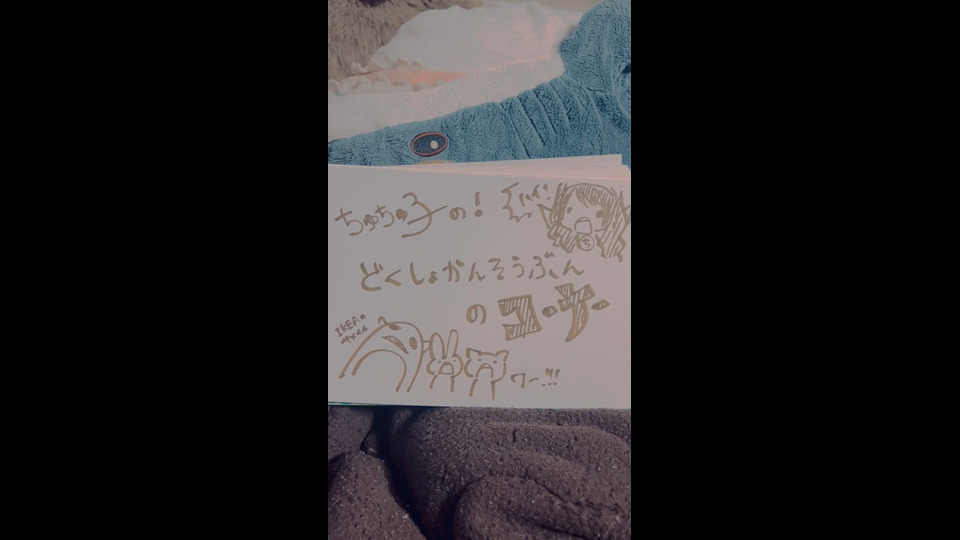 ちゅちゅ子の!
どくしょかんそうぶん
の コーナー
IKEAの
サメくん
ワー!!!